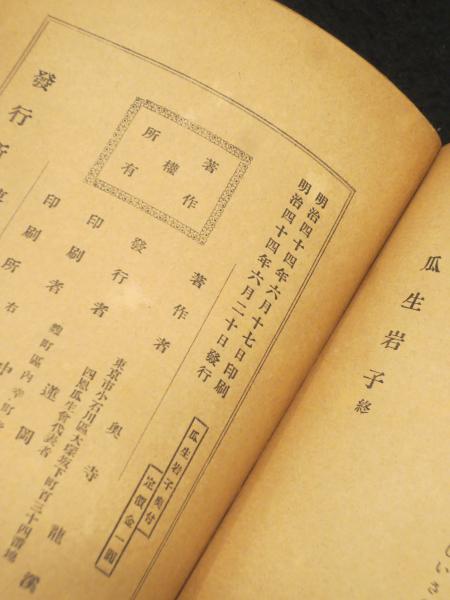 瓜生岩子 終
明治四十四年六月十七日印刷
明治四十四年六月二十日發行
著作權所有
瓜生岩子奧付
定價金一圓
著作者 奧寺龍溪
東京市小石川區大塚坂下町百三十四番地
四恩瓜生會代表者
發行者 蓮岡
麴町區内幸町
印刷者 中
印刷所
右
發行所